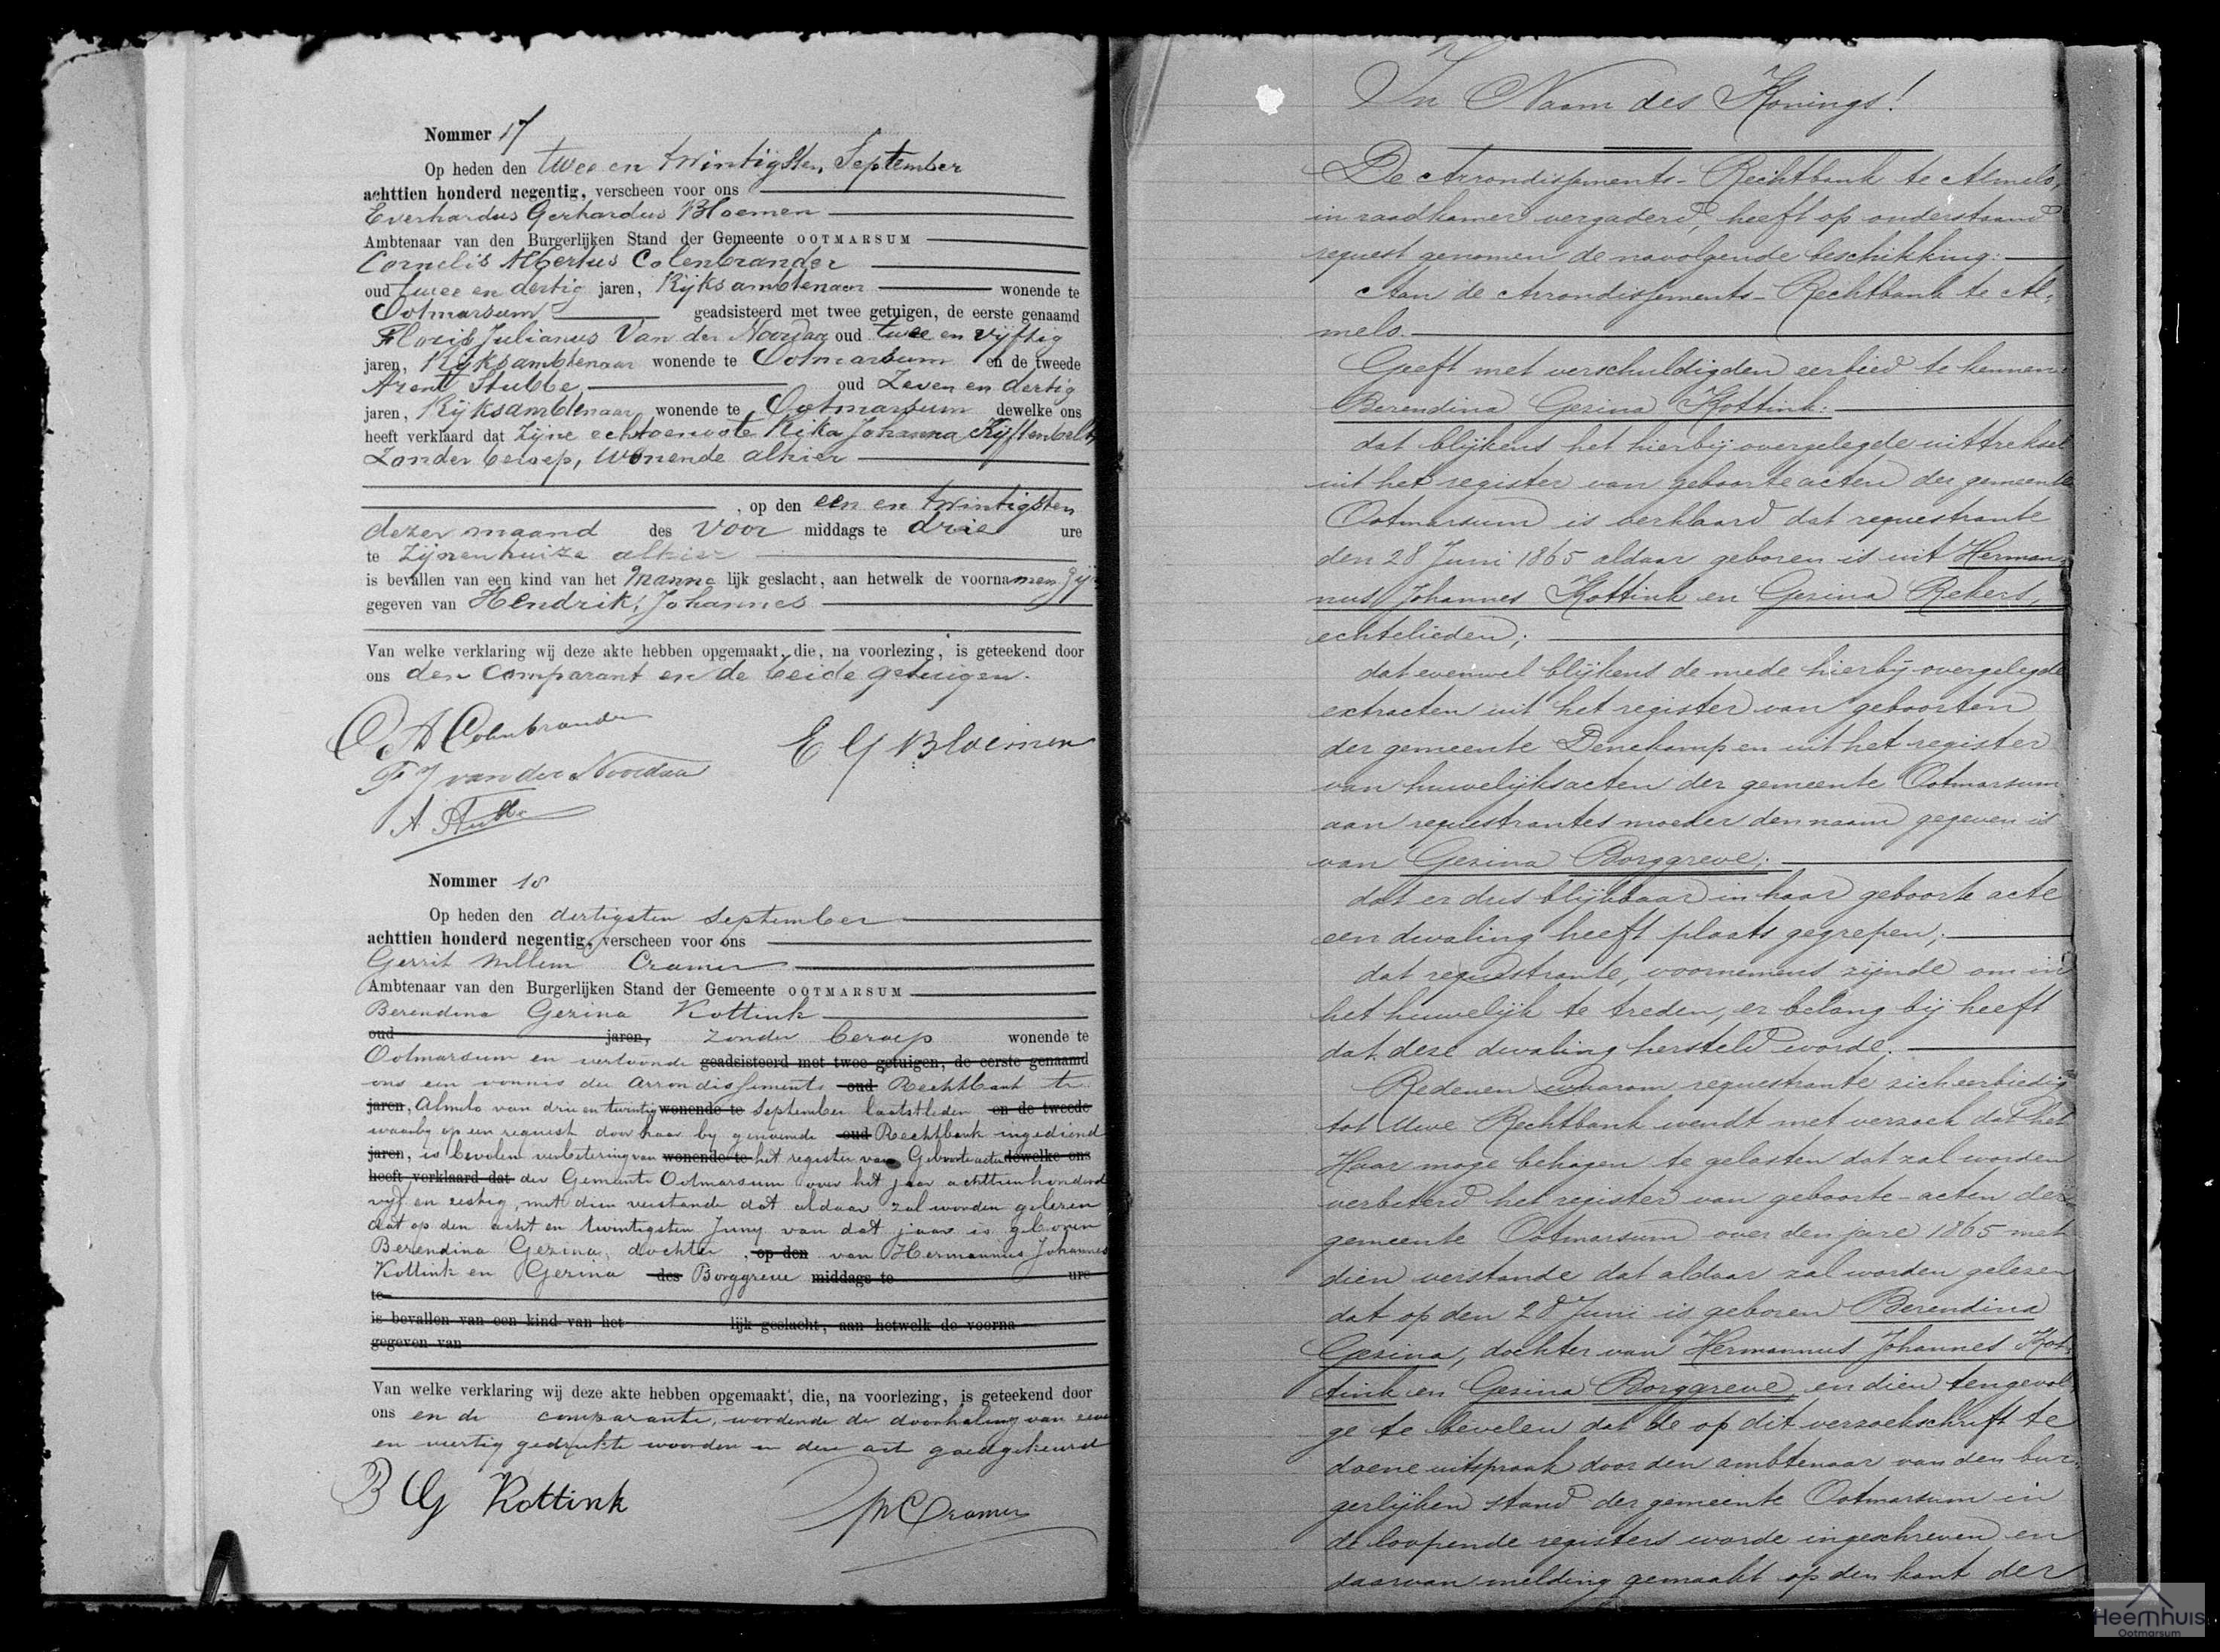 Nommer 17
Op heden den twee en twintigsten September
achttien honderd negentig, verscheen voor ons
Everhardus Gerhardus Bloemen
Ambtenaar van den Burgerlijken Stand der Gemeente OOTMARSUM
Cornelis Albertus Colenbrander
oud twee en dertig jaren, Rijksambtenaar wonende te
Ootmarsum geadsisteerd met twee getuigen, de eerste genaamd
Floris Julianus Van der Noordaa oud twee en vijftig
jaren, Rijksambtenaar wonende te Ootmarsum en de tweede
Arent Stubbe oud Zeven en dertig
jaren, Rijksambtenaar wonende te Ootmarsum dewelke ons
heeft verklaard dat zijne echtgenoote Rika Johanna
Zonder beroep, wonende alhier
, op den een en twintigsten
dezer maand des voor middags te drie ure
te zijnen huize alhier
is bevallen van een kind van het manne lijk geslacht, aan hetwelk de voornamen zijn
gegeven van Hendrik, Johannes
Van welke verklaring wij deze akte hebben opgemaakt, die, na voorlezing, is geteekend door
ons den comparant en de beide getuigen.
C A Colenbrander
E G Bloemen
F J van der Noordaa
A. Stubbe
Nommer 18
Op heden den dertigsten September
achttien honderd negentig, verscheen voor ons
Gerrit Willem Cramer
Ambtenaar van den Burgerlijken Stand der Gemeente OOTMARSUM
Berendina Gezina Kottink
oud jaren, zonder beroep wonende te
Ootmarsum en vertoonde geadsisteerd met twee getuigen, de eerste genaamd
ons een vonnis der Arrondissements oud Rechtbank te
jaren, Almelo van drie en twintig wonende te September laatstleden en de tweede
waarbij op een request door haar bij genoemde oud Rechtbank ingediend
jaren, is bevolen verbetering van wonende te het register van Geboorteacten dewelke ons
heeft verklaard dat der Gemeente Ootmarsum over het jaar achttienhonderd
vijf en zestig, met dien verstande dat aldaar zal worden gelezen
dat op den acht en twintigsten Juny van dat jaar is geboren
Berendina Gezina, dochter , op den van Hermannus Johannes
Kottink en Gezina des Borggreve middags te ure
te
is bevallen van een kind van het lijk geslacht, aan hetwelk de voorna
gegeven van
Van welke verklaring wij deze akte hebben opgemaakt, die, na voorlezing, is geteekend door
ons en de comparante, wordende de doorhaling van een
en veertig gedrukte woorden in deze act goedgekeurd
B G Kottink
Cramer
In Naam des Konings!
De Arrondissements-Rechtbank te Almelo,
in raadkamer vergaderd, heeft op onderstaand
request genomen de navolgende beschikking:
Aan de Arrondissements-Rechtbank te Al-
melo.
Geeft met verschuldigden eerbied te kennen
Berendina Gezina Kottink:
dat blijkens het hierbij overgelegde uittreksel
uit het register van geboorteacten der gemeente
Ootmarsum is verklaard dat requestrante
den 28 Juni 1865 aldaar geboren is uit Herman-
nus Johannes Kottink en Gezina Rekers,
echtelieden;
dat evenwel blijkens de mede hierbij overgelegde
extracten uit het register van geboorten
der gemeente Denekamp en uit het register
van huwelijksacten der gemeente Ootmarsum
aan requestrantes moeder den naam gegeven is
van Gezina Borggreve;
dat er dus blijkbaar in haar geboorte acte
een dwaling heeft plaats gegrepen;
dat requestrante, voornemens zijnde om in
het huwelijk te treden, er belang bij heeft
dat deze dwaling hersteld worde.
Redenen waarom requestrante zich eerbiedig
tot Uwe Rechtbank wendt met verzoek dat het
Haar moge behagen te gelasten dat zal worden
verbeterd het register van geboorte-acten der
gemeente Ootmarsum over den jare 1865 met
dien verstande dat aldaar zal worden gelezen
dat op den 28 Juni is geboren Berendina
Gezina, dochter van Hermannus Johannes Kot-
tink en Gezina Borggreve, en dien tengevol-
ge te bevelen dat de op dit verzoekschrift te
doene uitspraak door den ambtenaar van den bur-
gerlijken stand der gemeente Ootmarsum in
de loopende registers worde ingeschreven en
daarvan melding gemaakt op den kant der
Heemhuis
Ootmarsum